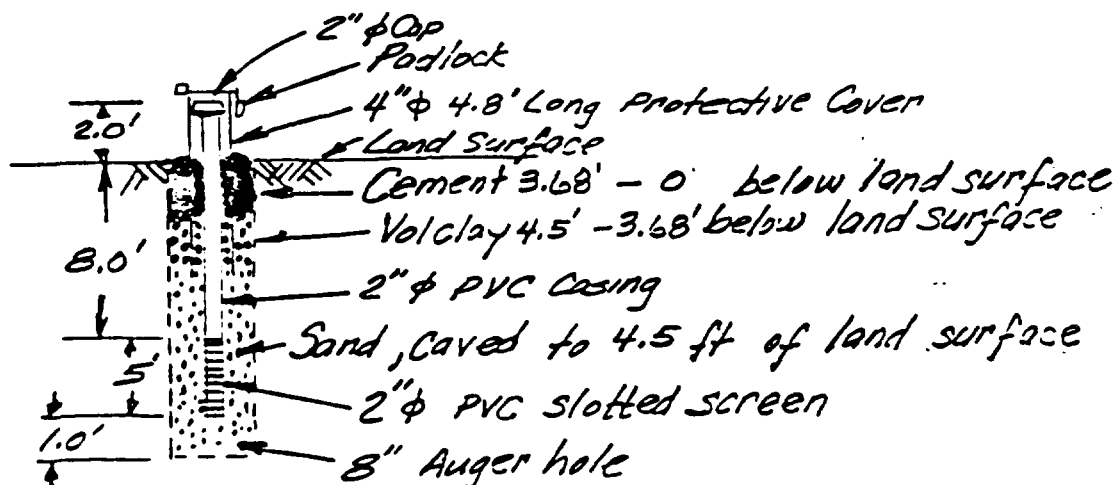 2" φ Cap
Padlock
4" φ 4.8' Long Protective Cover
2.0'
Land Surface
Cement 3.68' - 0 below land surface
Volclay 4.5' - 3.68' below land surface
8.0'
2" φ PVC Casing
Sand, Caved to 4.5 ft of land surface
5'
2" φ PVC slotted screen
1.0'
8" Auger hole